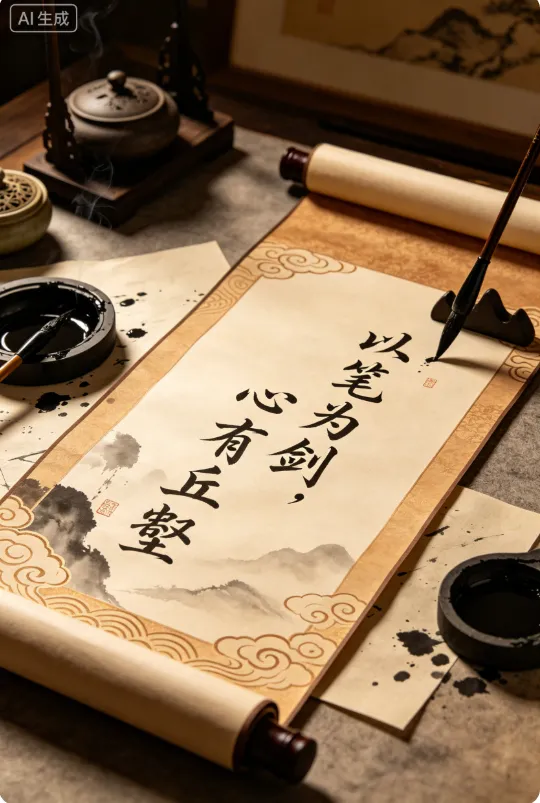 AI生成
以笔为剑，
心有丘壑